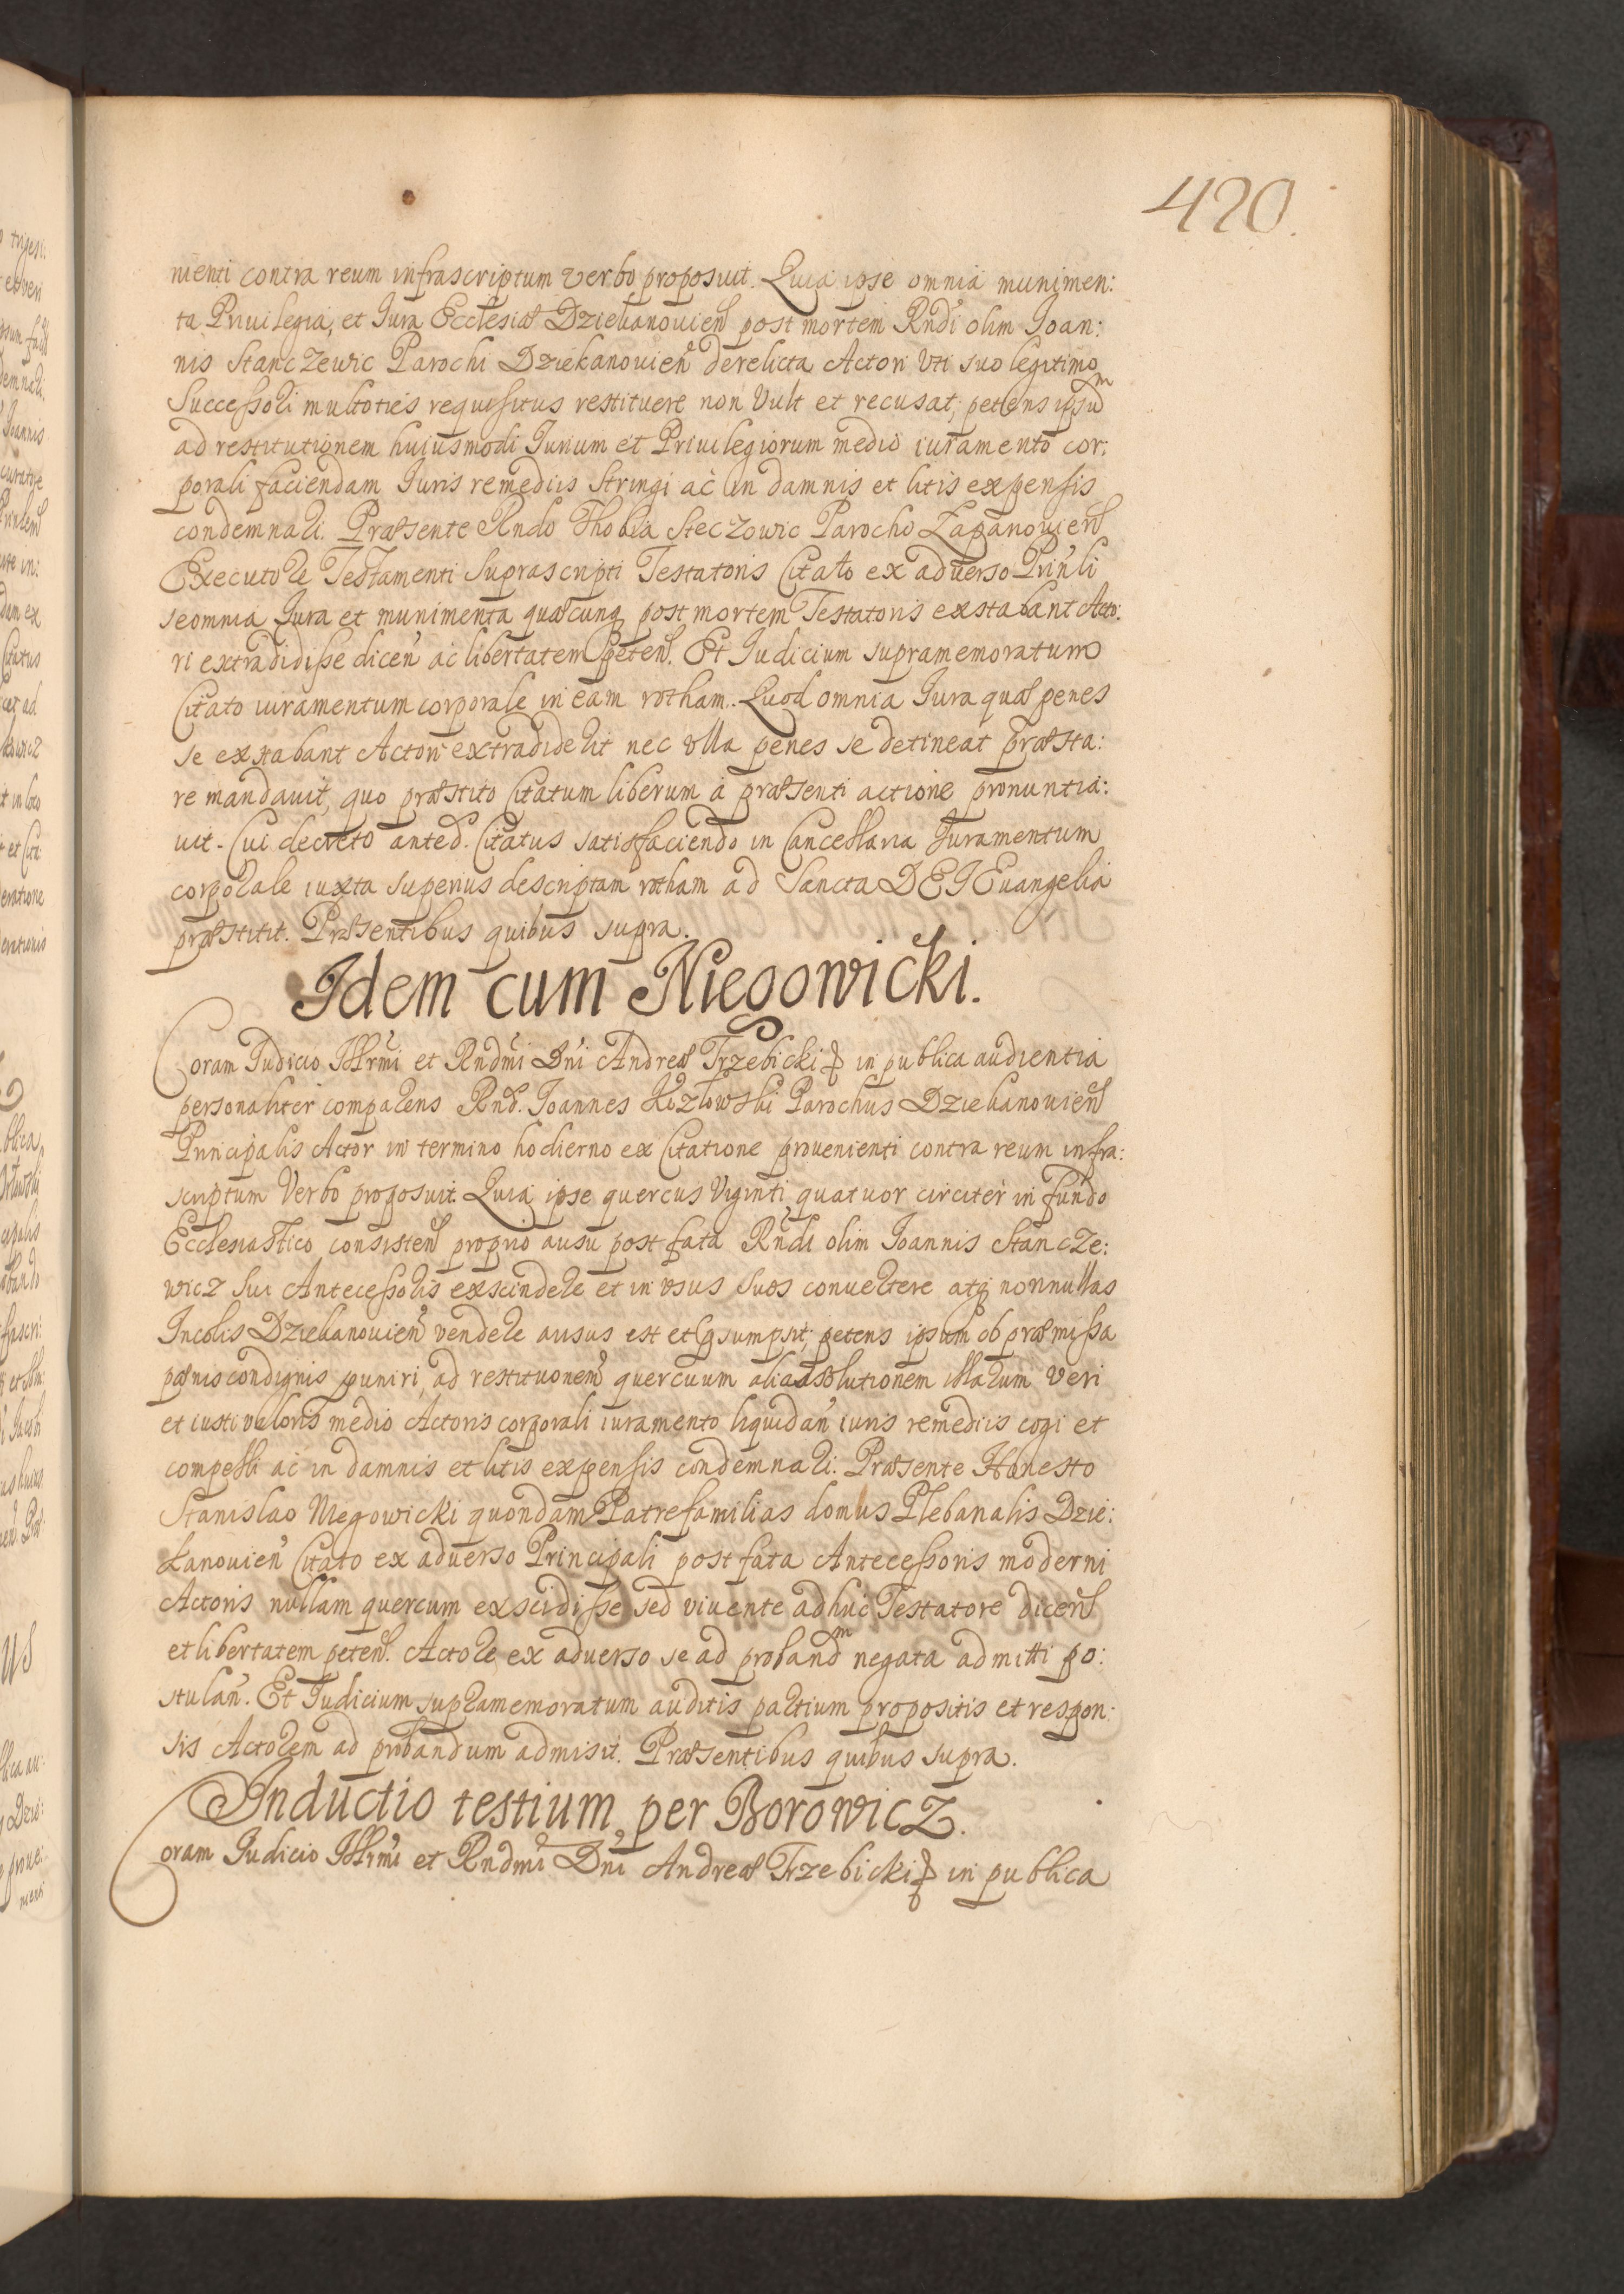 420.
nienti contra reum infrascriptum verbo proposuit. Quia ipse omnia munimen:
ta Priuilegia, et Jura Ecclesiæ Dziekanouien̄ post mortem Rndi olim Joan:
nis Stanczewic Parochi Dziekanouien̄ derelicta Actori Vti suo legitimo
Successori multoties requisitus restituere non Vult et recusat, petens ipsum
ad restitutionem huiusmodi Jurium et Priuilegiorum medio iuramento cor:
porali faciendam Juris remediis Stringi ac in damnis et litis expensis
condemnari. Præsente Rndo Thobia Steczowic Parocho Łapanouien̄
Executore Testamenti Suprascripti Testatoris Citato ex aduerso Prin̄li
se omnia Jura et munimenta quæcunq post mortem Testatoris exstabant Acto:
ri extradidisse dicen̄ ac libertatem peten̄. Et Judicium supramemoratum
Citato iuramentum corporale in eam rotham. Quod omnia Jura quæ penes
se exstabant Actori extradiderit nec vlla penes se detineat præsta:
re mandauit, quo præstito Citatum liberum à præsenti actione pronuntia:
uit. Cui decreto anted. Citatus satisfaciendo in Cancellaria Juramentum
corporale iuxta superius descriptam rotham ad Sancta DEI Euangelia
præstitit. Præsentibus quibus supra.
Idem cum Niegowicki.
Coram Judicio Illrm̄i et Rndm̄i Dn̄i Andreæ Trzebicki in publica audientia
personaliter comparens Rnd. Joannes Kozłowski Parochus Dziekanouien̄
Principalis Actor in termino hodierno ex Citatione prouenienti contra reum infra:
scriptum Verbo proposuit. Quia ipse quercus Viginti quatuor circiter in fundo
Ecclesiastico consisten̄ proprio ausu post fata Rndi olim Joannis Stancze:
wicz Sui Antecessoris exscindere et in vsus Suos conuertere atq nonnullas
Incolis Dziekanouien̄ vendere ausus est et p̄sumpsit, petens ipsum ob præmissa
pænis condignis puniri, ad restituonem quercuum alias solutionem illarum Veri
et iusti valoris medio Actoris corporali iuramento liquidan̄ iuris remediis cogi et
compelli ac in damnis et litis expensis condemnari. Præsente Honesto
Stanislao Niegowicki quondam Patrefamilias domus Plebanalis Dzie:
kanouien̄ Citato ex aduerso Principali post fata Antecessoris moderni
Actoris nullam quercum exscidisse sed viuente adhuc Testatore dicen̄
et libertatem peten̄. Actore ex aduerso se ad proband̄m negata admitti po:
stulan̄. Et Judicium supramemoratum auditis partium propositis et respon:
sis Actorem ad probandum admisit. Præsentibus quibus supra.
Inductio testium per Borowicz.
Coram Judicio Illrm̄i et Rndm̄i Dn̄i Andreæ Trzebicki in publica